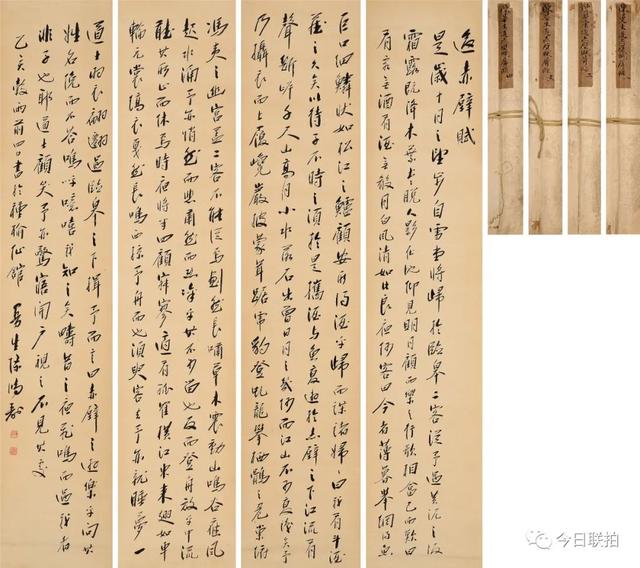 後赤壁賦
是歲十月之望步自雪堂將歸於臨皋二客從予過黃泥之坂
霜露既降木葉盡脫人影在地仰見明月顧而樂之行歌相答已而歎曰
有客無酒有酒無殽月白風清如此良夜何客曰今者薄暮舉網得魚
巨口細鱗狀如松江之鱸顧安所得酒乎歸而謀諸婦婦曰我有斗酒
藏之久矣以待子不時之須於是攜酒與魚復遊於赤壁之下江流有
聲斷岸千尺山高月小水落石出曾日月之幾何而江山不可復識矣予
乃攝衣而上履巉巖披蒙茸踞虎豹登虬龍攀栖鶻之危巢俯
馮夷之幽宮蓋二客不能從焉劃然長嘯草木震動山鳴谷應風
起水涌予亦悄然而悲肅然而恐凜乎其不可留也反而登舟放乎中流
聽其所止而休焉時夜將半四顧寂寥適有孤鶴橫江東來翅如車
輪元裳縞衣戛然長鳴而掠予舟而西也須臾客去予亦就睡夢一
道士羽衣翩翩過臨皋之下揖予而言曰赤壁之遊樂乎問其
姓名俛而不答嗚呼噫嘻我知之矣疇昔之夜飛鳴而過我者
非子也耶道士顧笑予亦驚寤開戶視之不見其處
乙亥穀雨前四日書於種榆仙館 曼生陳鴻壽
今日联拍